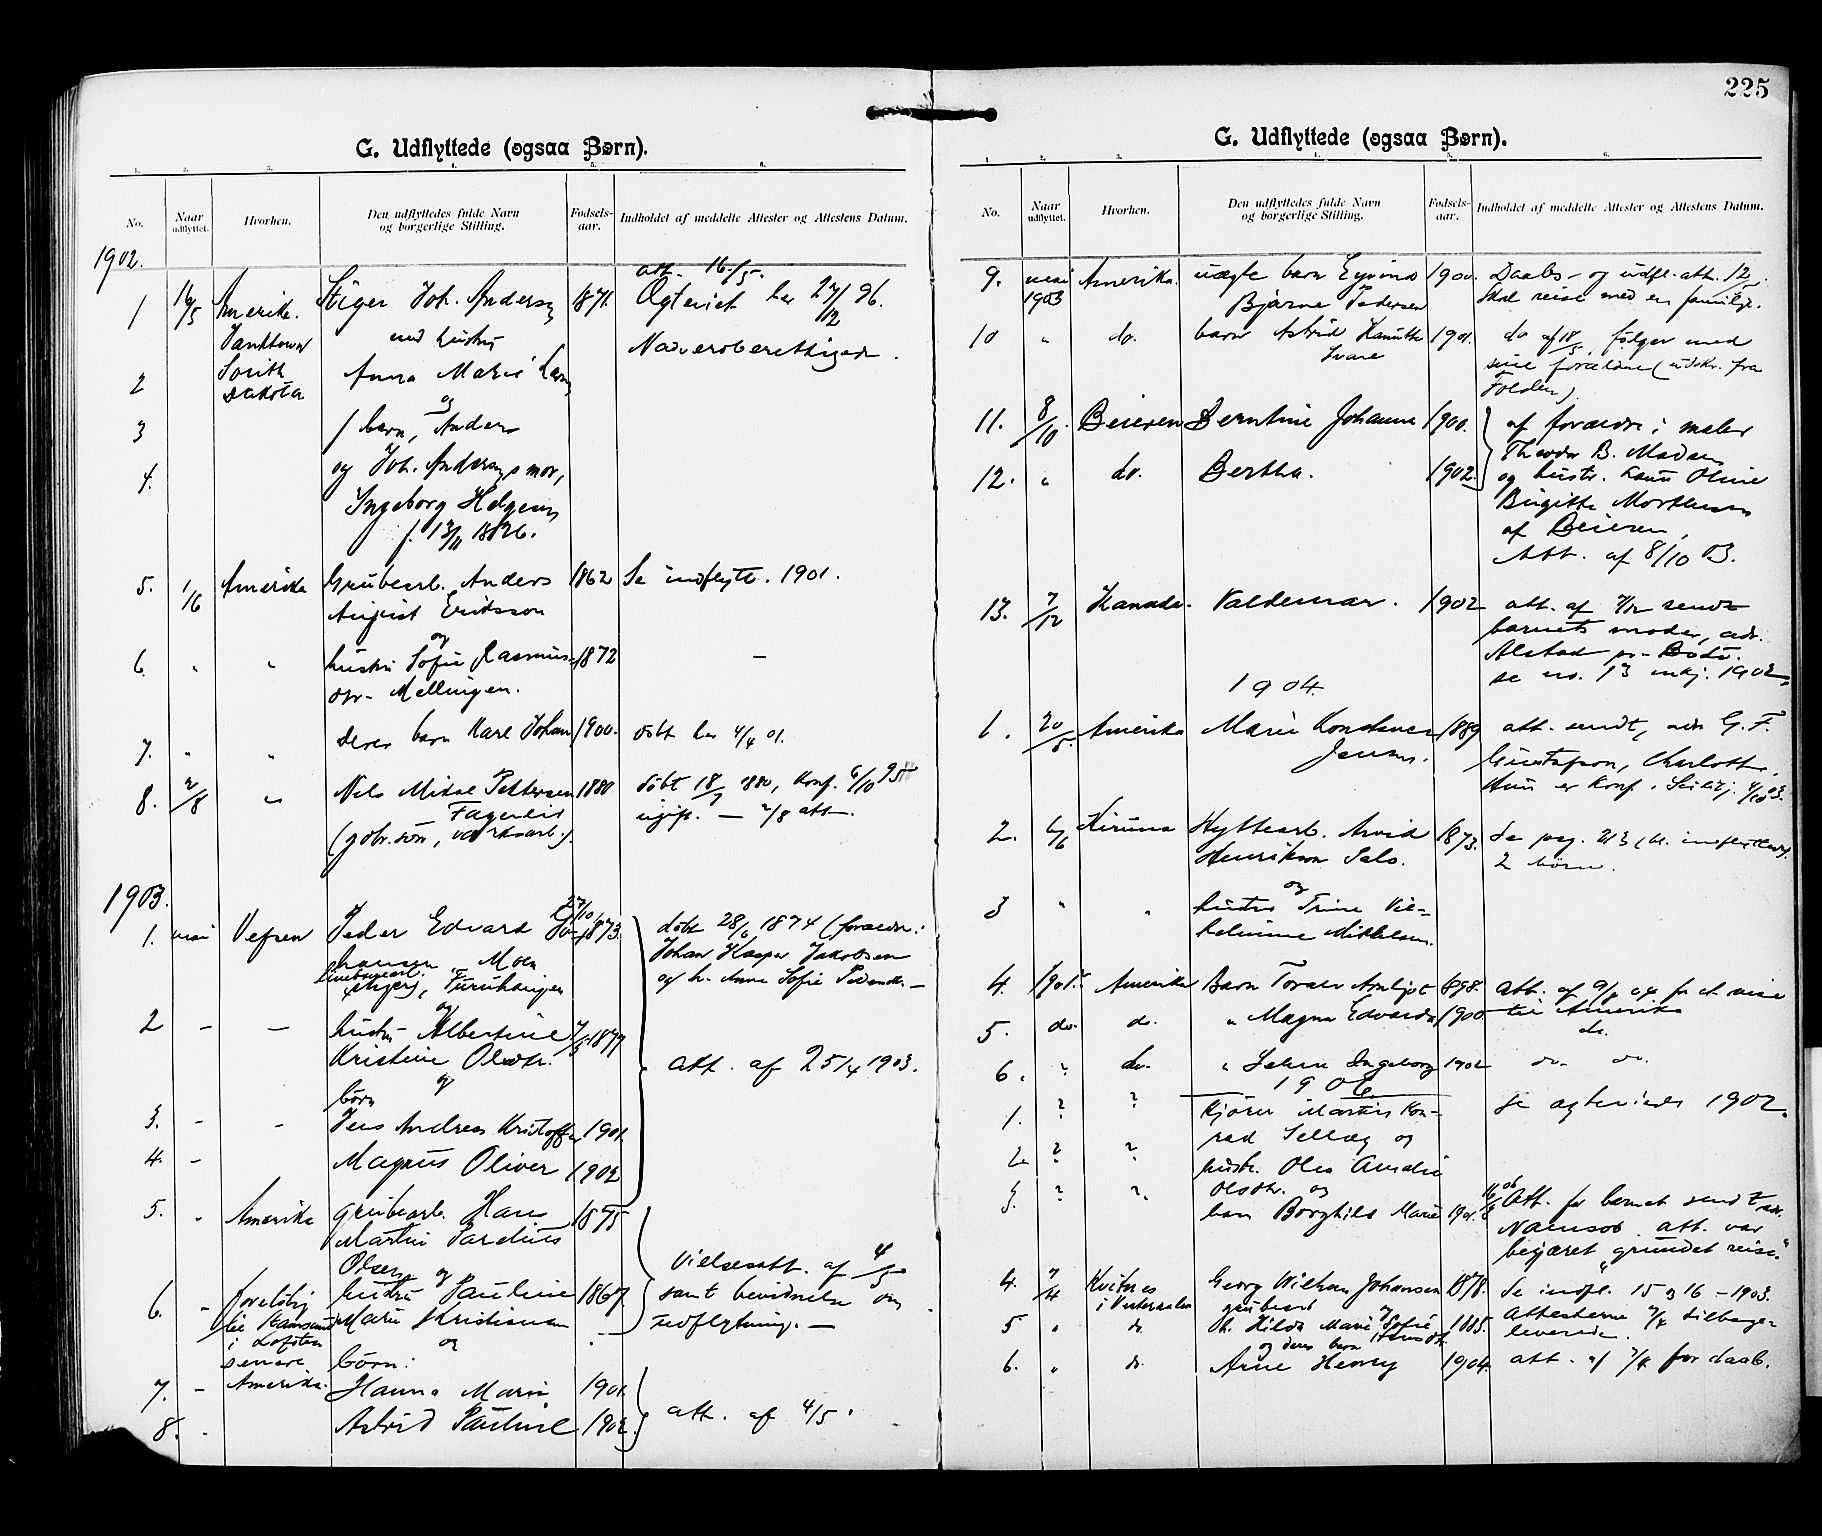 225
G. Udflyttede (ogsaa Børn).
1. 2. 3. 4. 5. 6.
No. Naar udflyttet. Hvorhen. Den udflyttedes fulde Navn og borgerlige Stilling. Fødsels-aar. Indholdet af meddelte Attester og Attestens Datum.
1902.
att. 16/5.
1 16/5 Amerika. Stiger Joh. Anders 1871. Ogteviet her 27/12 96.
med hustru Nadverberettigede.
South
2 Dakota Anna Marie
og
3 1 barn, Anders
4. og Joh. Anders mor,
Ingeborg Helges
f. 13/11 1826.
5. 1/6 Amerika Grubearb. Anders 1862 Se indflytt. 1901.
August Eriksson
og
6. " " hustru Sofie Rasmus- 1872 —
Mellingen.
7. " " Deres barn Karl Johan 1900. døbt her 4/4 01.
8. 2/8 " Nils Mikal Pettersen 1880 døbt 18/7 1880, konf. 6/10 95
Fagerli ugift. — 2/8 att.
(gbr.søn, værksarb.).
1903.
1. mai Vefsen Peder Edvard 27/10 1873. døbt 28/6 1874 (forældre:
hansen Moen Johan Kaspar Jakobsen
og h. Anne Sofie
og
2 — — hustru Albertine 7/5 1877
Kristine Olsdtr. att. af 25/4 1903.
og
børn
3. — — Jens Andreas Kristoffer 1901.
4. — Magnus Oliver 1902
5. " Amerika grubearb. Hans 1875
Martin Pardelius
Olsen og Vielsesatt. af 4/5
6. " foreløbig hustru Pauline 1867. samt bevidnelse om
til Marie Kristian udflytning. —
i Lofoten og
senere børn:
7. — Amerika. Hanna Marie 1901.
8. " Astrid Pauline 1902. att. af 4/5.
G. Udflyttede (ogsaa Børn).
1. 2. 3. 4. 5. 6.
No. Naar udflyttet. Hvorhen. Den udflyttedes fulde Navn og borgerlige Stilling. Fødsels-aar. Indholdet af meddelte Attester og Attestens Datum.
9. mai Amerika. uægte barn Eyvind 1900. Daabs- og udfl. att. 12/5.
1903 Bjarne Pedersen Skal reise med en familje.
10 " do. barn Astrid 1901. do af 18/5, følger med
Svare sine forældre (udskr. fra
Folden).
11. 8/10. Beieren Berntine Johanna 1900. af forældre: maler
Theodor B. Madsen
12. " do. Bertha. 1902. og hustr. Oline
Birgitte
af Beieren,
Att. af 8/10 03.
13. 7/12 Kanada. Valdemar. 1902 att. af 7/12 sendt
barnets moder, adr.
Alstad pr. Bodø.
se no. 13 1902.
1904.
1. 20/5. Amerika Marie Konstanse 1889 att. sendt, adr G. F.
Jens. Gustafson, Charlotte.
Hun er konf. i
2. 6/6 Kiruna Hyttearb. Arvid 1873. Se pag. 213,
Henrikson Salo. 2 børn.
og
3 " " hustru Trine Vil-
helmine Mikkelsen.
4. 1905. Amerika Barn Toralv Arnljot 1898. att. af 9/8 04 for at reise
5. do. do. " Magna Edvarda 1900 til Amerika
do.
6. " do. " Ingeborg 1902 do. do.
1906.
1. ? ? Kjører Martin Kon- Se ogteviede 1902.
rad Sellæg og
2 ? ? hustr. Olea Amalie
Olsdtr. og
3. ? ? barn Borghild Marie 1901. Att. for barnet sendt adr.
Namsos. att. var
begjæret „grundet reise“
4. 7/4 Kvitnes Georg Wilhem Johansen 1878. Se indfl. 15 og 16 – 1903.
i Vesteraalen grubearb og Attesterne 7/4 tilbage-
5 " do. h. Hilda Marie Sofie 1885. leverede.
og deres barn
6. " do. Arne Henry 1904. att. af 7/4 for daab.